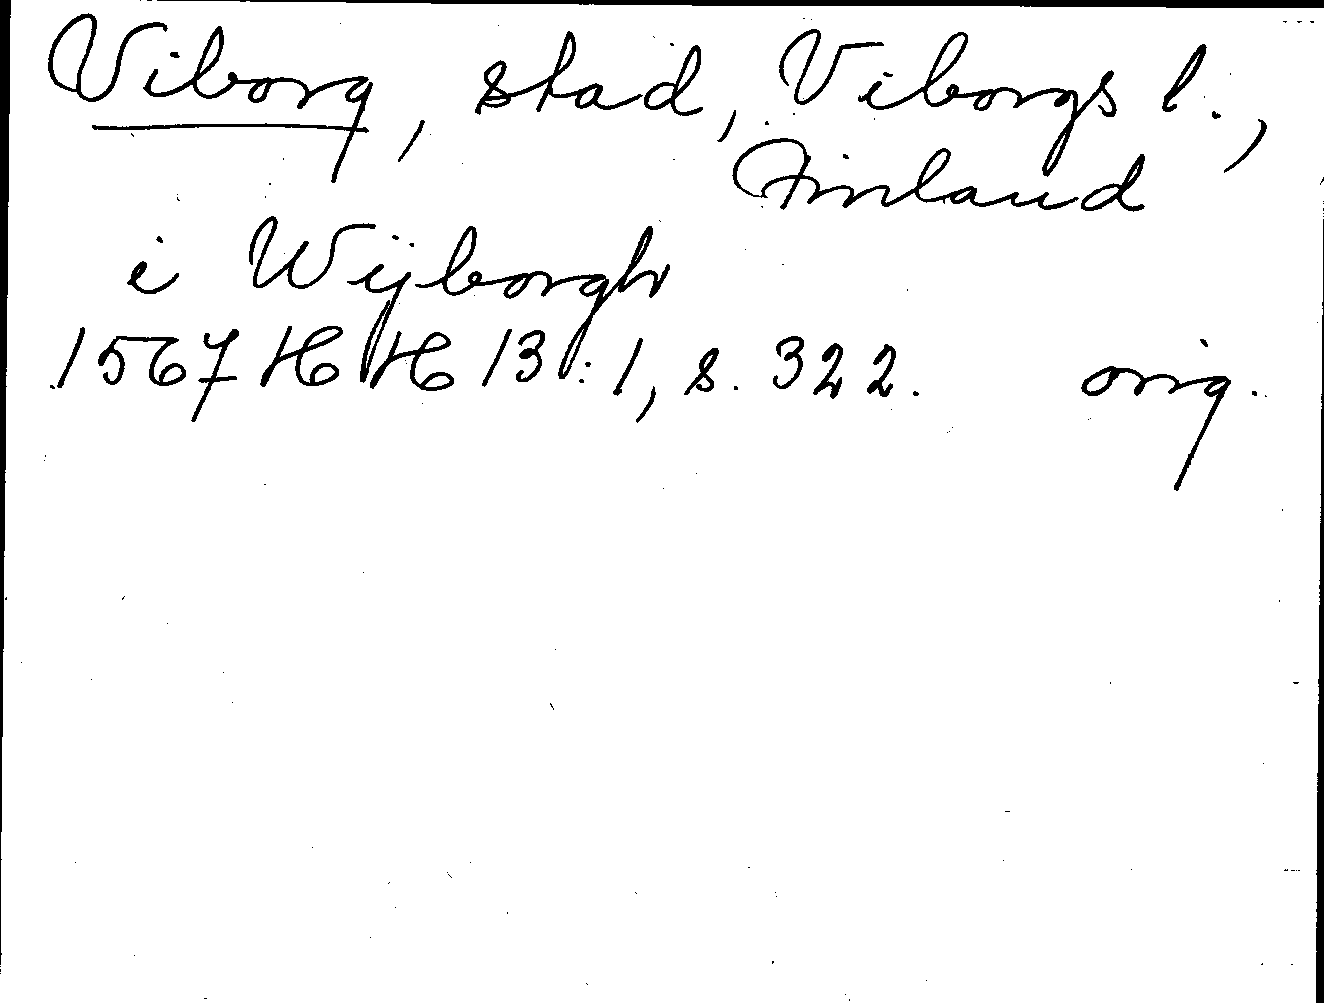 Viborg, stad, Viborgs l.,
Finland
i Wijborgh
1567 HH 13:1, s. 322. orig.